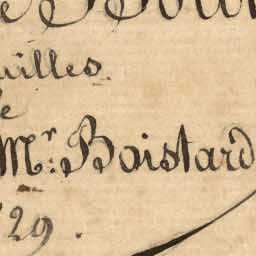 uilles.
e
Mr: Boistard
29.